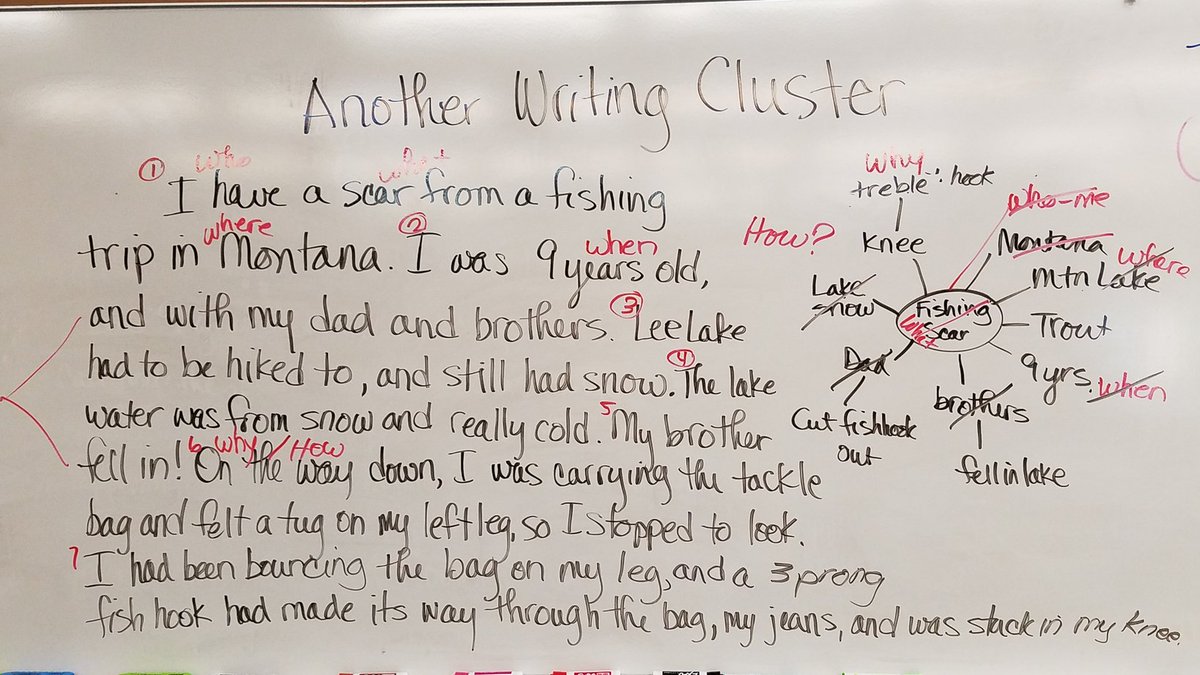 Another Writing Cluster
① who what
I have a scar from a fishing
where ② when
trip in Montana. I was 9 years old,
③
and with my dad and brothers. Lee Lake
④
had to be hiked to, and still had snow. The lake
5
water was from snow and really cold. My brother
6 why / How
fell in! On the way down, I was carrying the tackle
bag and felt a tug on my left leg, so I stopped to look.
7 I had been bouncing the bag on my leg, and a 3 prong
fish hook had made its way through the bag, my jeans, and was stuck in my knee.
why
treble hook
How? knee
who-me
Montana
where
mtn Lake
Lake
snow
Fishing
Scar
what
Trout
9 yrs. when
Dad
Cut fishhook
out
brothers
fell in lake